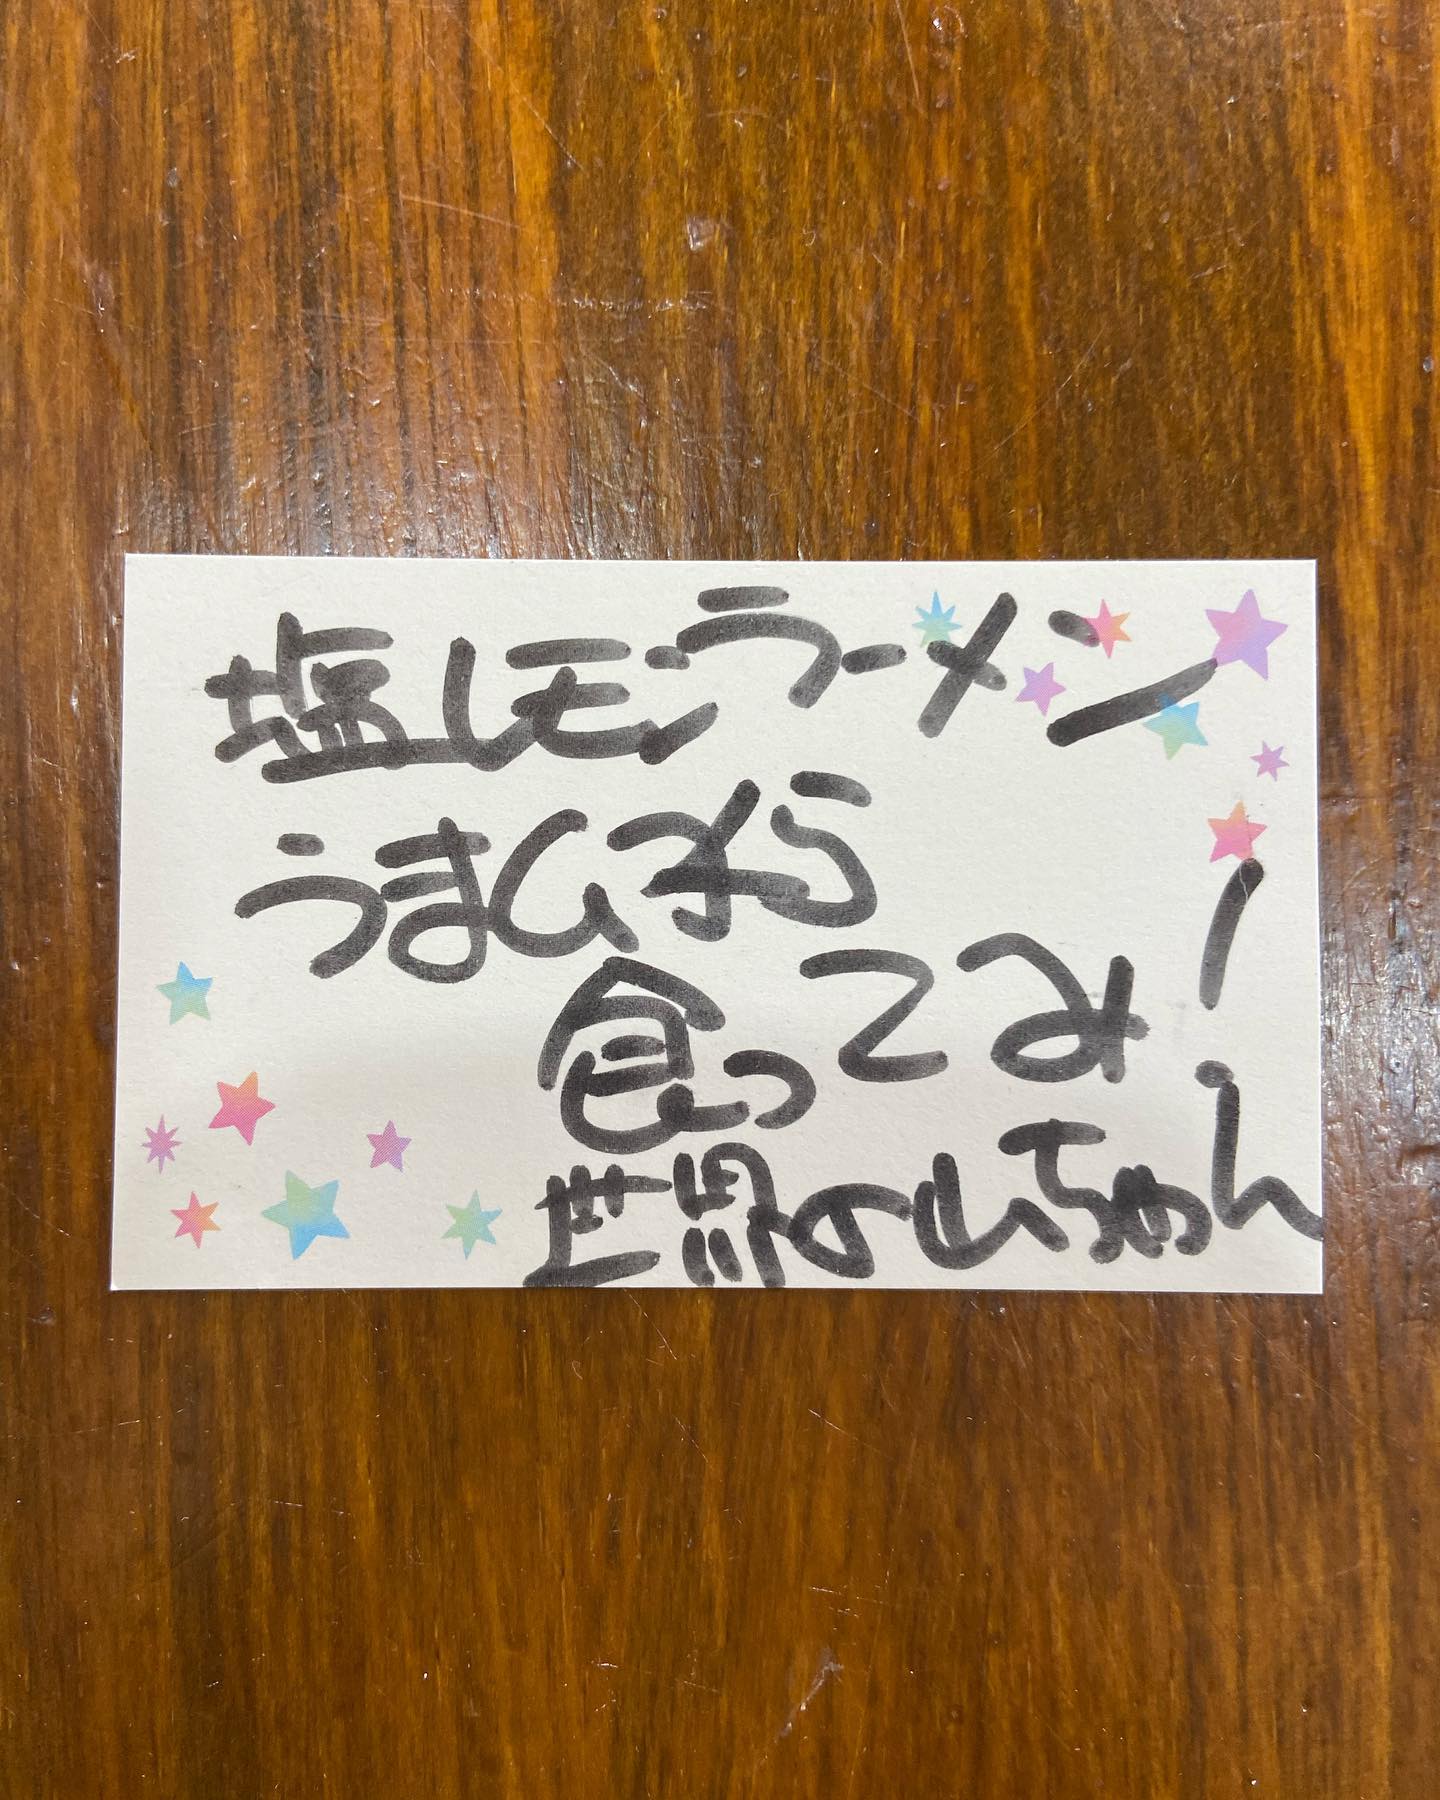 塩レモンラーメン
うまいから
食ってみ!
世界の山ちゃん